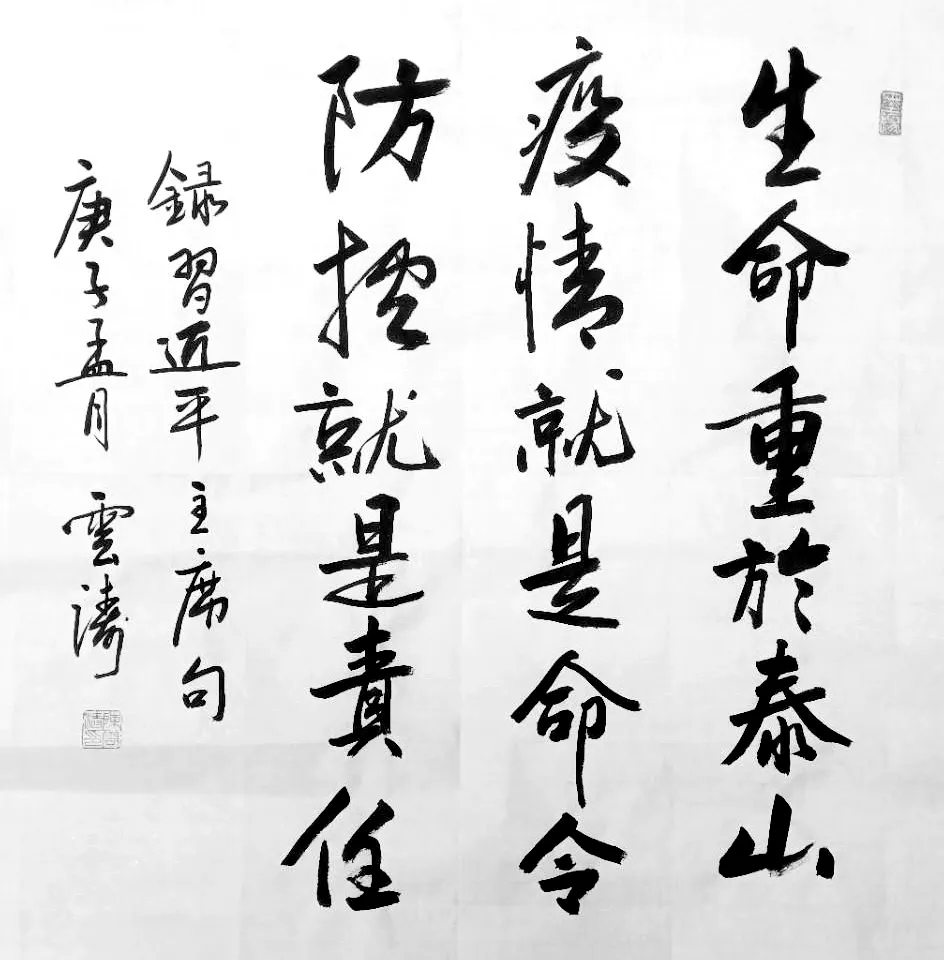 生命重於泰山
疫情就是命令
防控就是責任
録習近平主席句
庚子孟月 雲濤